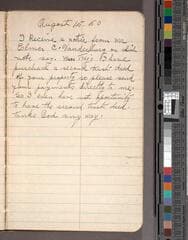 August 1st, 50
I Receive a notice from mr
Elmer C. Vanderburg on which
note say. I have
purchase a second trust deed
of your property so please send
your payments directly to me.
So I even have not oportunity
to have the second trust deed
thanks God any way!